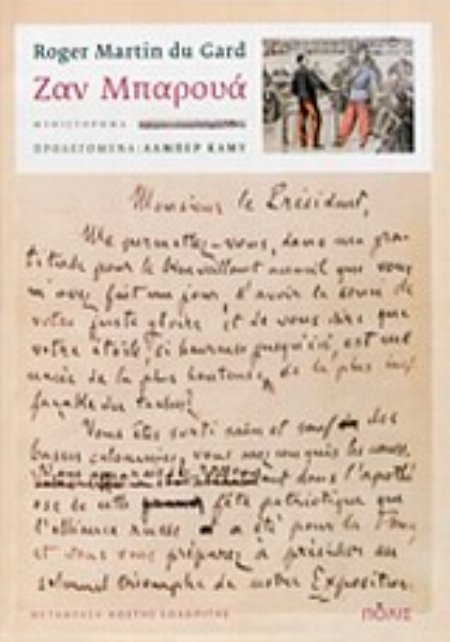 Roger Martin du Gard
Ζαν Μπαρουά
ΜΥΘΙΣΤΟΡΗΜΑ
ΠΡΟΛΕΓΟΜΕΝΑ: ΑΛΜΠΕΡ ΚΑΜΥ
Monsieur le Président,
Me permettez-vous, dans ma gra-
titude pour le bienveillant accueil que vous
m'avez fait un jour, d'avoir le souci de
votre juste gloire et de vous dire que
votre étoile, si heureuse jusqu'ici, est me
nacée de la plus honteuse, de la plus inef
façable des taches?
Vous êtes sorti sain et sauf des
basses calomnies, vous avez conquis les cœurs.
dans l'apothé
ose de cette fête patriotique que
l'alliance russe a été pour la
et vous vous préparez à présider au
solennel triomphe de notre Exposition
ΜΕΤΑΦΡΑΣΗ: ΚΩΣΤΗΣ
ΠΟΛΙΣ